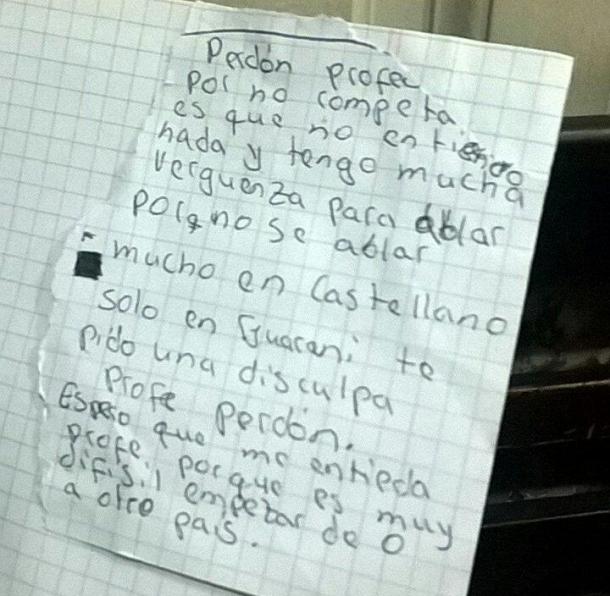 Perdón profe
por no competa.
es que no entiendo
nada y tengo mucha
verguenza para ablar
porq no se ablar
mucho en Castellano
solo en Guarani te
pido una disculpa
profe perdón.
Espero que me entieda
profe porque es muy
difisil empezar de 0
a otro pais.